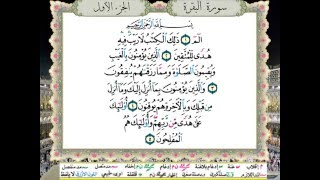 سورة البقرة
الجزء الأول
بِسْمِ اللَّهِ الرَّحْمَٰنِ الرَّحِيمِ
الٓمٓ ١ ذَٰلِكَ الْكِتَٰبُ لَا رَيْبَ فِيهِ
هُدًى لِّلْمُتَّقِينَ ٢ الَّذِينَ يُؤْمِنُونَ بِالْغَيْبِ
وَيُقِيمُونَ الصَّلَوٰةَ وَمِمَّا رَزَقْنَٰهُمْ يُنفِقُونَ
٣ وَالَّذِينَ يُؤْمِنُونَ بِمَا أُنزِلَ إِلَيْكَ وَمَا أُنزِلَ
مِن قَبْلِكَ وَبِالْآخِرَةِ هُمْ يُوقِنُونَ ٤ أُولَٰئِكَ
عَلَىٰ هُدًى مِّن رَّبِّهِمْ وَأُولَٰئِكَ هُمُ
الْمُفْلِحُونَ ٥